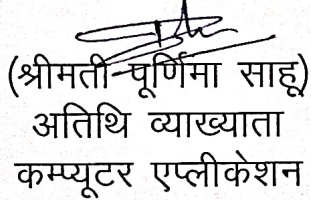 (श्रीमती पूर्णिमा साहू)
अतिथि व्याख्याता
कम्प्यूटर एप्लीकेशन